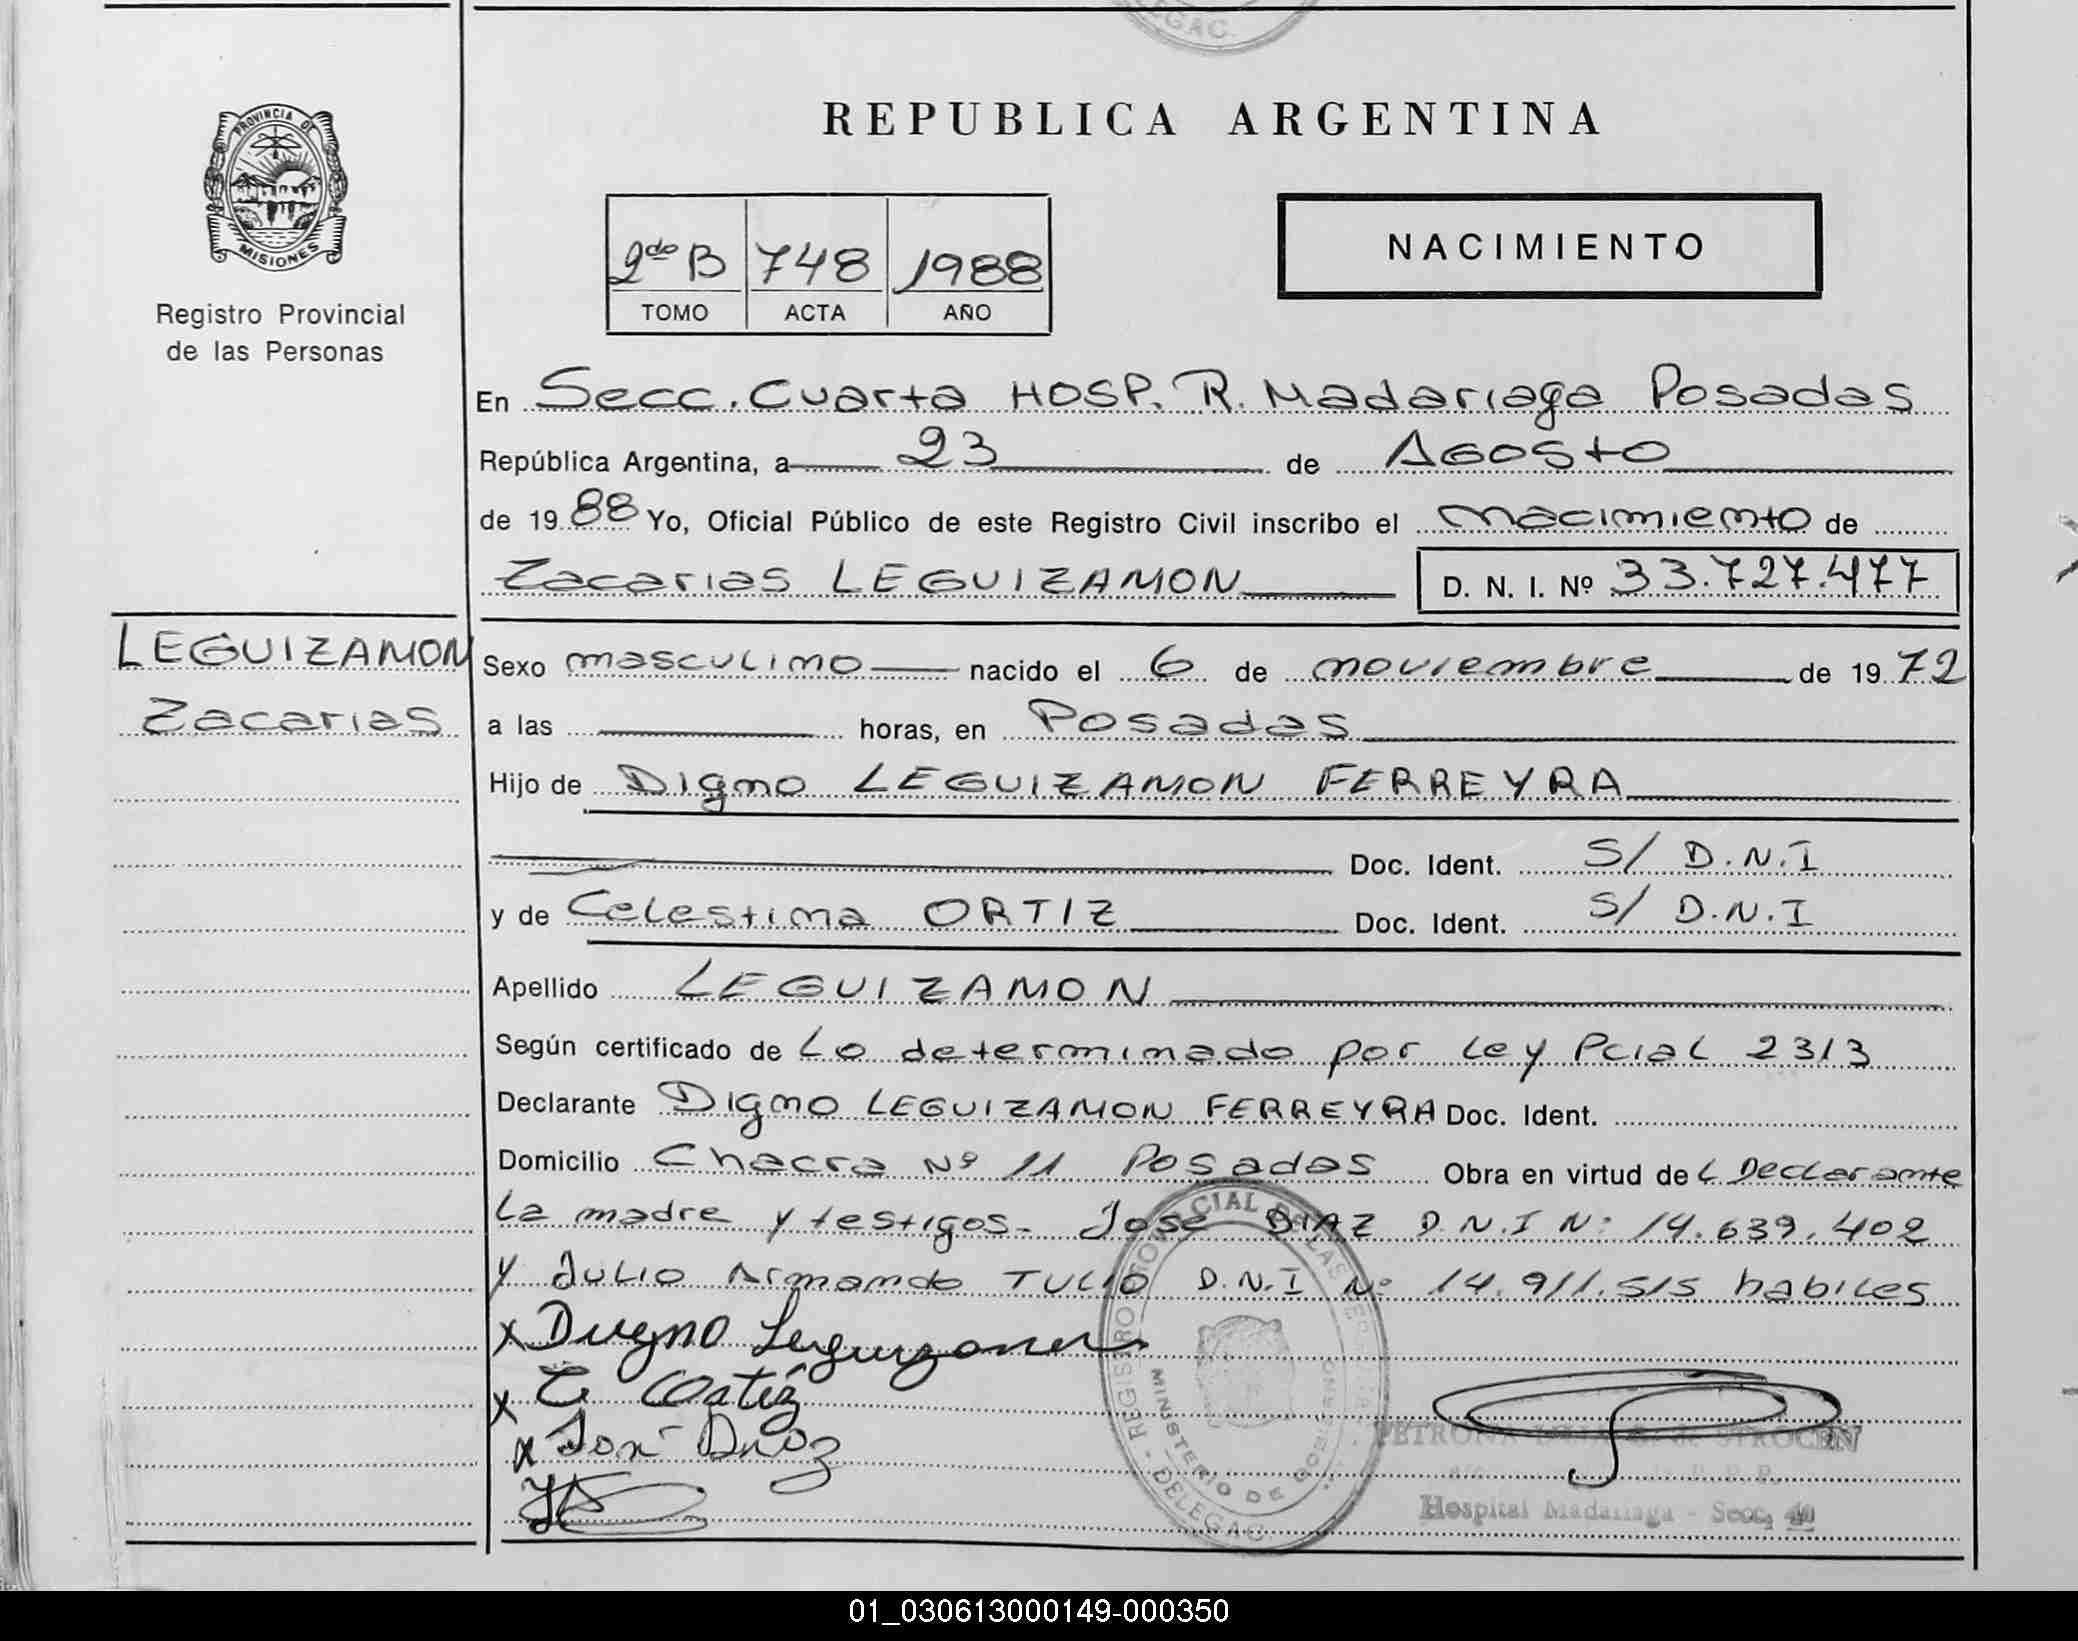 EGAC.
REPUBLICA ARGENTINA
PROVINCIA DE
MISIONES
Registro Provincial
de las Personas
2do B 748 1988
TOMO ACTA AÑO
NACIMIENTO
En Secc. Cuarta HOSP. R. Madariaga Posadas
República Argentina, a 23 de AGOSTO
de 1988 Yo, Oficial Público de este Registro Civil inscribo el nacimiento de
Zacarias LEGUIZAMON D. N. I. Nº 33.727.477
LEGUIZAMON
Zacarias
Sexo masculino nacido el 6 de noviembre de 1972
a las horas, en Posadas
Hijo de Digno LEGUIZAMON FERREYRA
Doc. Ident. S/ D.N.I
y de Celestina ORTIZ Doc. Ident. S/ D.N.I
Apellido LEGUIZAMON
Según certificado de Lo determinado por Ley Pcial 2313
Declarante Digno LEGUIZAMON FERREYRA Doc. Ident.
Domicilio Chacra Nº 11 Posadas Obra en virtud del Declarante
La madre y testigos. Jose DIAZ D.N.I Nº 14.639.402
y Julio Armando TULIO D.N.I Nº 14.911.515 habiles
x Digno Leguizamon
x C Ortiz
x José Diaz
REGISTRO PROVINCIAL DE LAS PERSONAS
MINISTERIO DE GOBIERNO
DELEGAC.
PETRONA de STROCEN
Hospital Madariaga - Secc. 4a
01_030613000149-000350